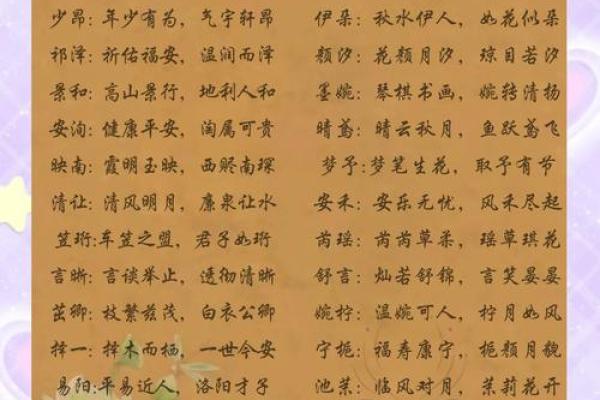 少昂：年少有为，气宇轩昂
伊朵：秋水伊人，如花似朵
祁泽：祈佑福安，温润而泽
颜汐：花颜月汐，琼目若汐
景和：高山景行，地利人和
墨婉：琴棋书画，婉转清扬
安洵：健康平安，洵属可贵
晴鸢：晴云秋月，鱼跃鸢飞
映南：霞明玉映，西赆南琛
梦予：梦笔生花，取予有节
清让：清风明月，廉泉让水
安禾：安乐无忧，风禾尽起
笠珩：车笠之盟，君子如珩
芮瑶：芮芮草柔，瑶草琪花
言晰：言谈举止，透彻清晰
舒言：灿若舒锦，言笑晏晏
茁卿：枝繁兹茂，白衣公卿
婉柠：温婉可人，柠月如风
择一：择木而栖，一世今安
宁栀：福寿康宁，栀颜月貌
易阳：平易近人，洛阳才子
池茉：临风对月，茉莉花开